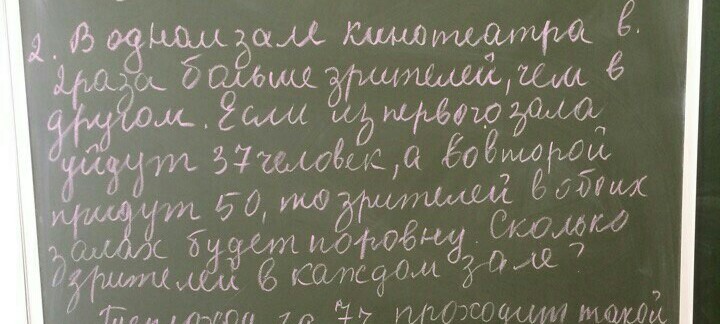 2. В одном зале кинотеатра в
2 раза больше зрителей, чем в
другом. Если из первого зала
уйдут 37 человек, а во второй
придут 50, то зрителей в обоих
залах будет поровну. Сколько
зрителей в каждом зале?
Теплоход за 7ч проходит такой